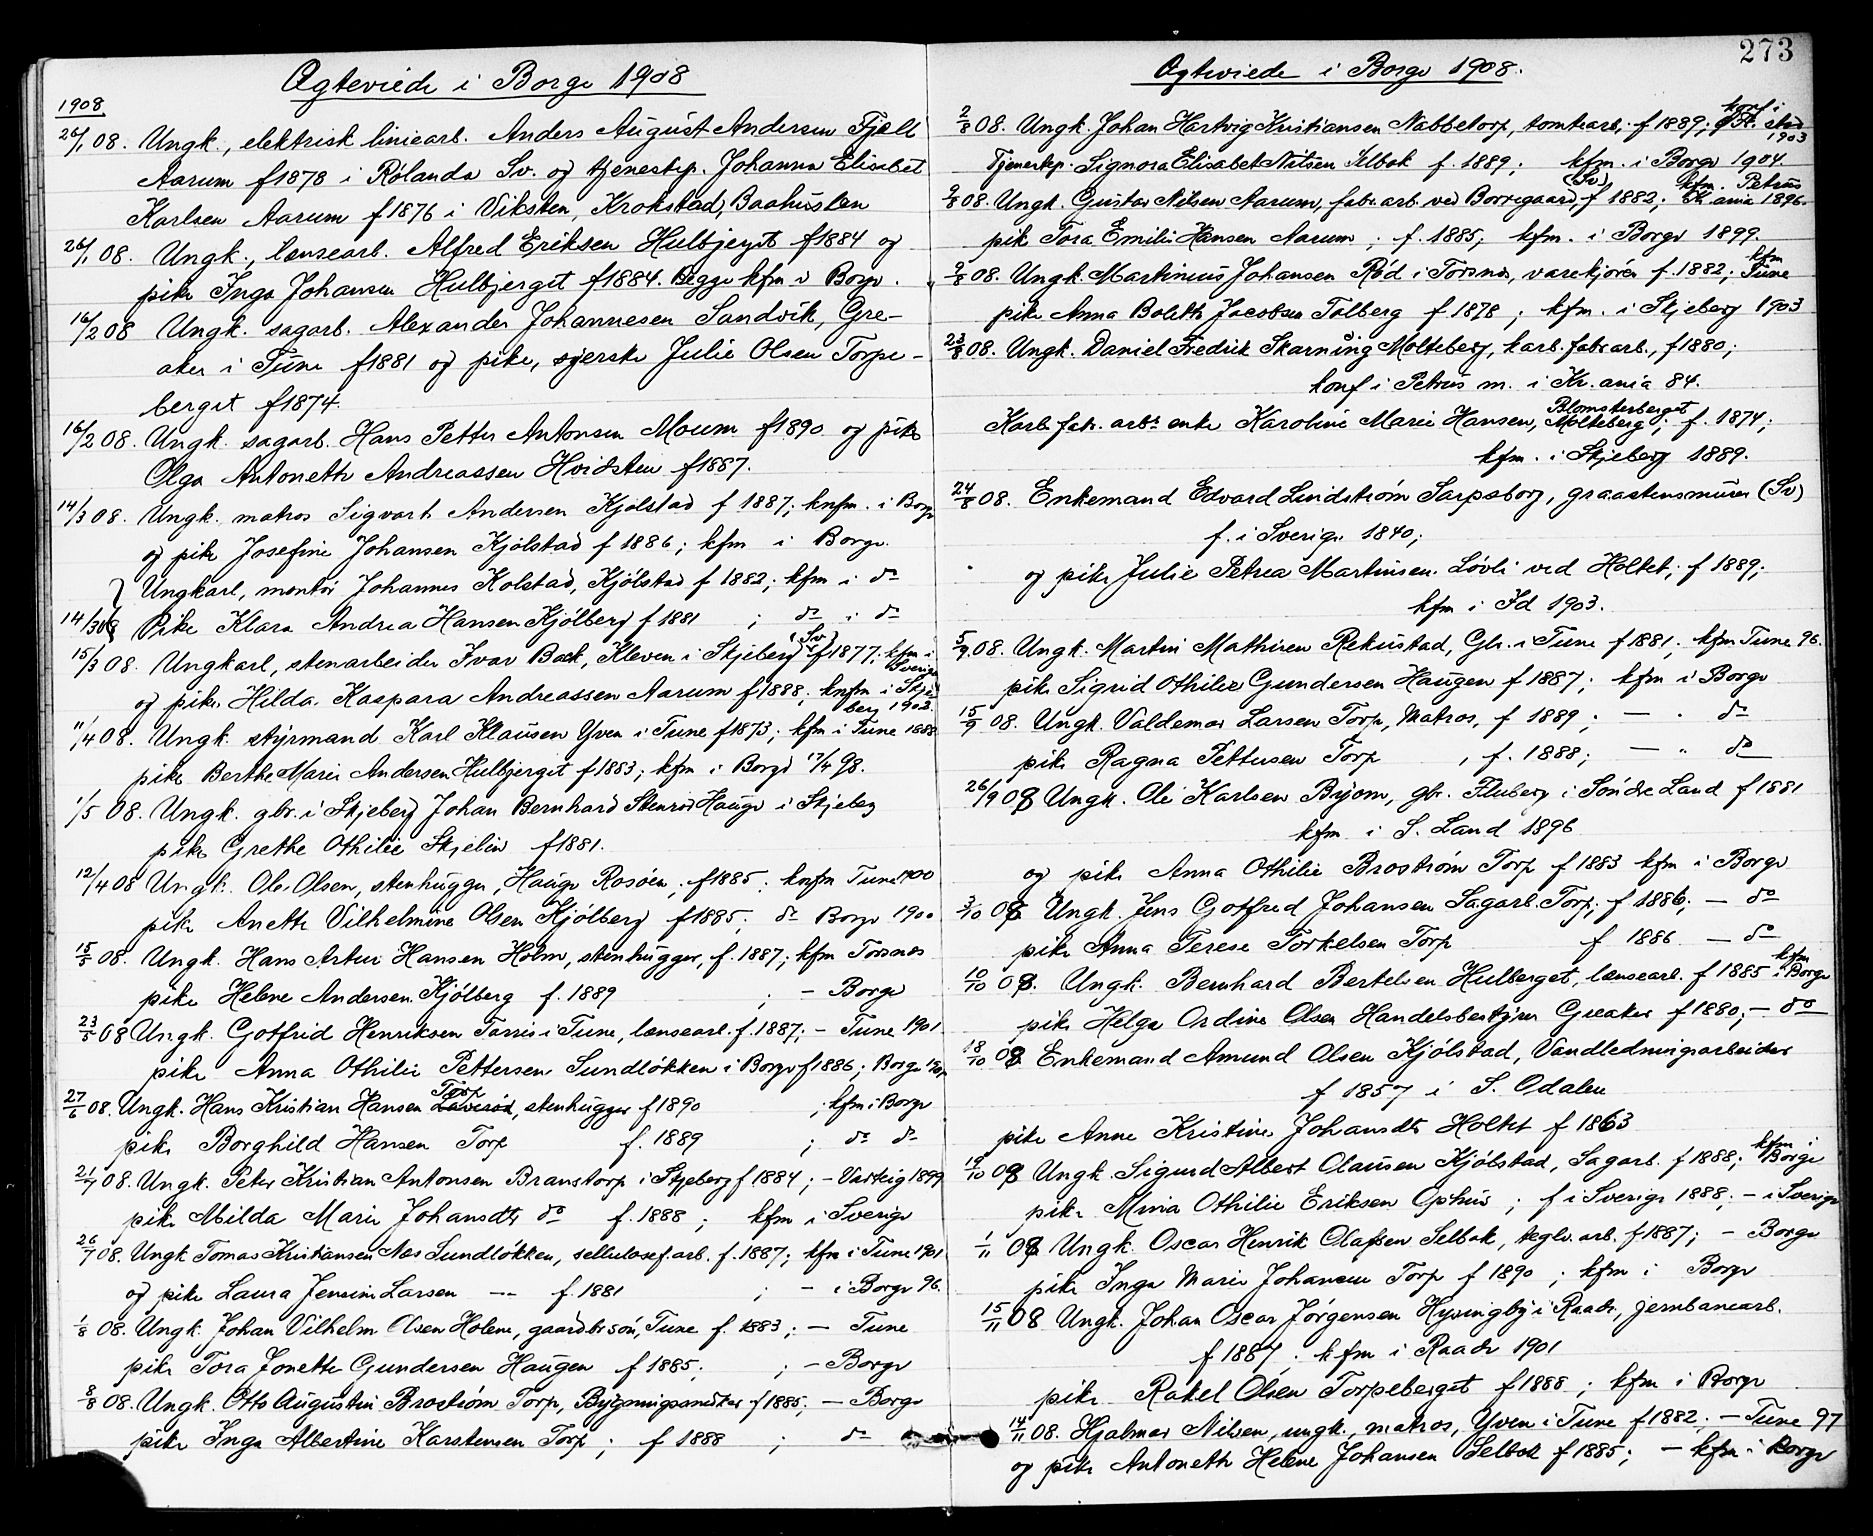 Ægteviede i Borge 1908
1908
26/1 08. Ungk., elektrisk liniearb. Anders August Andersen Fjell
Aarum f 1878 i Rölanda Sv. og tjenestep. Johanna Elisabet
Karlsen Aarum f 1876 i Viksten, Krokstad, Baahuslen
26/1 08. Ungk., lensearb. Alfred Eriksen Hulbjerget f 1884 og
pike Inga Johansen Hulbjerget f 1884. Begge kfm i Borge.
16/2 08 Ungk. sagarb. Alexander Johannesen Sandvik, Gre-
aker i Tune f 1881 og pike, syerske Julie Olsen Torpe-
berget f 1874.
16/2 08. Ungk. sagarb. Hans Petter Antonsen Moum f 1890 og pike
Olga Antonette Andreassen Hvidsten f 1887.
14/3 08. Ungk. matros Sigvart Andersen Kjølstad f 1887; knfm. i Borge
og pike Josefine Johansen Kjølstad f 1886; kfm i Borge.
Ungkarl, montör Johannes Kolstad, Kjölstad f 1882; kfm i do
14/3 08 Pike Klara Andrea Hansen Kjölberg f 1881 ; do i do
15/3 08. Ungkarl, stenarbeider Ivar Back, Kleven i Skjeberg (Sv) f 1877; kfm i Sverige
og pike Hilda Kaspara Andreassen Aarum f 1888; knfm i Skjeberg 1903.
11/4 08. Ungk. styrmand Karl Klausen Yven i Tune f 1873; kfm i Tune 1888
pike Berthe Marie Andersen Hulbjerget f 1883; kfm i Borge 17/4 98.
1/5 08. Ungk. gbr. i Skjeberg Johan Bernhard Stenrød Hauge i Skjeberg
pike Grethe Othilie Skjelin f 1881.
12/4 08 Ungk. Ole Olsen, stenhugger, Hauge Rosöen, f 1885; knfm Tune 1900
pike Anette Vilhelmine Olsen Kjölberg f 1885; do Borge 1900
15/5 08. Ungk. Hans Artur Hansen Holm, stenhugger, f. 1887; kfm Torsnes
pike Helene Andersen Kjölberg f. 1889 ; - Borge
23/5 08 Ungk. Gotfrid Henriksen Tarris i Tune, lensearb. f. 1887; - Tune 1901
pike Anna Othilie Pettersen Sundlökken i Borge f 1886; Borge
27/6 08. Ungk. Hans Kristian Hansen Torp, stenhugger f 1890 ; kfm i Borge
pike Borghild Hansen Torp f. 1889 ; do do
21/7 08. Ungk. Peter Kristian Antonsen Branstorp i Skjeberg f 1884; - Varteig 1899
pike Milda Marie Johansdtr do f. 1888; kfm i Sverige
26/7 08. Ungk Tomas Kristiansen Nes Sundlökken, sellulosef.arb. f. 1887; kfm i Tune 1901
og pike Laura Jensine Larsen -- f. 1881 ; - i Borge 96.
1/8 08. Ungk. Johan Vilhelm Olsen Holene, gaardbr.sön, Tune f. 1883; - Tune
pike Tora Jonette Gundersen Haugen f 1885; ; - Borge
8/8 08. Ungk. Otto Augustin Broström Torp, Bygningssnekker f 1885; - Borge
pike Inga Albertine Karstensen Torp; f 1888 ; do

273
Ægteviede i Borge 1908.
2/8 08. Ungk. Johan Hartvig Kristiansen Nabbetorp, tomtearb. f 1889; konf i Fr. stad 1903
Tjenestep. Signora Elisabet Nilsen Selbak f. 1889; kfm. i Borge 1904.
9/8 08. Ungk. Gustav Nilsen Aarum, fabr.arb. ved Borregaard, (Sv) f 1882; kfm. Petrus Kr.ania 1896.
pik Tora Emilie Hansen Aarum; f. 1885; kfm. i Borge 1899.
9/8 08. Ungk. Martinius Johansen Röd i Torsnes, varekjörer f. 1882; kfm Tune
pike Anna Boleth Jacobsen Tolberg f 1878; kfm. i Skjeberg 1903
23/8 08. Ungk. Daniel Fredrik Skarning Molteberg, karb.fabr.arb., f 1880;
konf i Petrus m. i Kr.ania 84.
Karb.fabr. arbs enke Karoline Marie Hansen, Blomsterberget Molteberg; f. 1874;
kfm. i Skjeberg 1889.
24/8 08. Enkemand Edvard Lindström Sarpsborg, graastensmurer (Sv)
f. i Sverige 1840;
og pike Julie Petrea Martinsen. Lövli ved Holtet; f 1889;
kfm i Id 1903.
5/9 08. Ungk. Martin Mathisen Rekustad, Gbr. i Tune f 1881; kfm Tune 96.
pike Sigrid Othilie Gundersen Haugen f 1887; kfm i Borge
15/9 08. Ungk. Valdemar Larsen Torp, Matros, f 1889; — " do
pike Ragna Pettersen Torp , f. 1888; — " do
26/9 08 Ungk. Ole Karlsen Bjom, gbr. Fluberg i Söndre Land f 1881
kfm i S. Land 1896
og pike Anna Othilie Broström Torp f 1883 kfm i Borge
3/10 08 Ungk. Jens Gotfred Johansen Sagarb. Torp; f 1886; — do
pike Anna Terese Torkelsen Torp f 1886 — do
10/10 08. Ungk. Bernhard Bertelsen Hulberget, lensearb. f 1885 kfm i Borge
pike Helga Ordine Olsen Handelsbestyrer Greaker f 1880; — do
18/10 08 Enkemand Amund Olsen Kjölstad, Vandledningsarbeider
f 1857 i S. Odalen
pike Anne Kristine Johansdtr Holtet f 1863
19/10 08 Ungk. Sigurd Albert Olausen Kjölstad, Sagarb. f 1888; kfm i Borge
pike Mina Othilie Eriksen Ophus; f i Sverige 1888; - i Sverige
1/11 08 Ungk. Oscar Henrik Olafsen Selbak, teglv.arb. f 1887; - Borge
pike Inga Marie Johansen Torp f 1890; kfm i Borge
15/11 08 Ungk. Johan Oscar Jörgensen Hysingby i Raade, jernbanearb.
f 1887; kfm i Raade 1901
pike Rakel Olsen Torpeberget f 1888; kfm i Borge
14/11 08. Hjalmar Nilsen, ungk., matros, Yven i Tune f 1882; - Tune 97
og pike Antonette Helene Johansen Selbak f 1885; - kfm i Borge